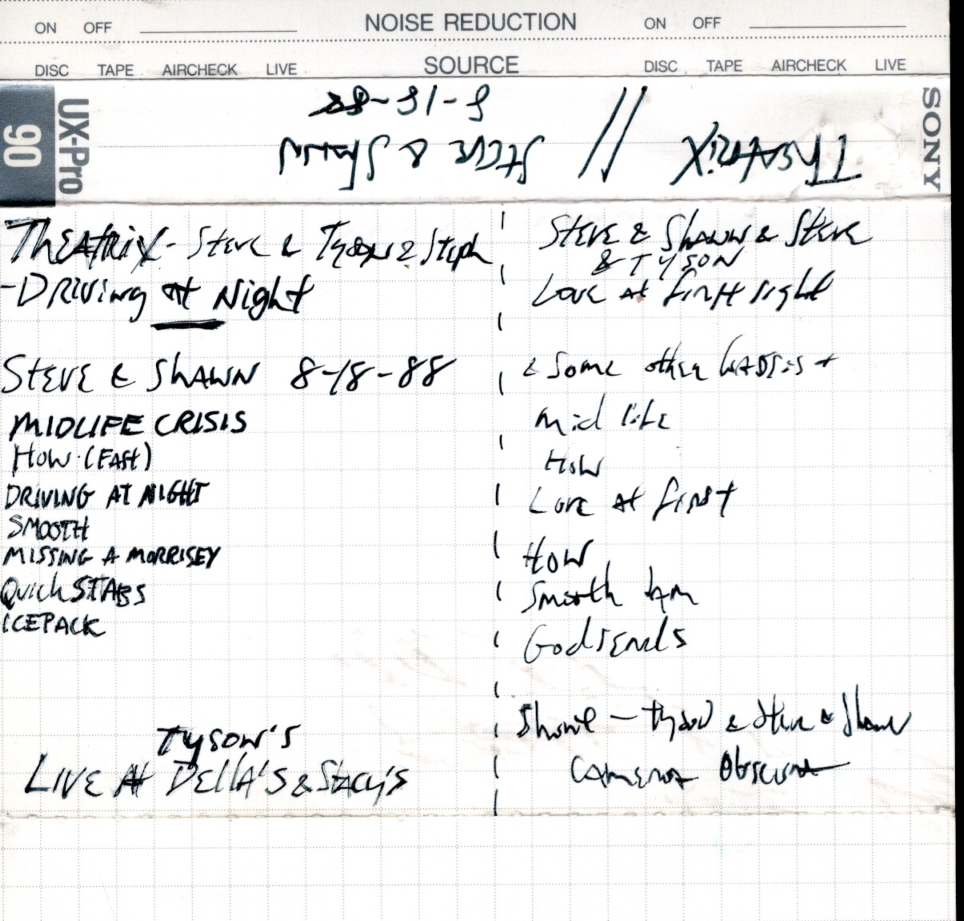 ON OFF NOISE REDUCTION ON OFF
DISC TAPE AIRCHECK LIVE SOURCE DISC TAPE AIRCHECK LIVE
UX-Pro 90
SONY
THEATRIX // STEVE & SHAWN
8-18-88
THEATRIX - STEVE & TYSON & Steph
- DRIVING at Night
STEVE & SHAWN 8-18-88
MIDLIFE CRISIS
HOW (FAST)
DRIVING AT NIGHT
SMOOTH
MISSING A MORRISEY
QUICK STABS
ICEPACK
TYSON'S
LIVE At DELLA'S & STACY'S
STEVE & SHAWN & STEVE
& TYSON
Love At first sight
& Some other
Mid life
HOW
Love At first
HOW
Smooth
Godsends
- Tyson & Steve & Shawn
Camera Obscura